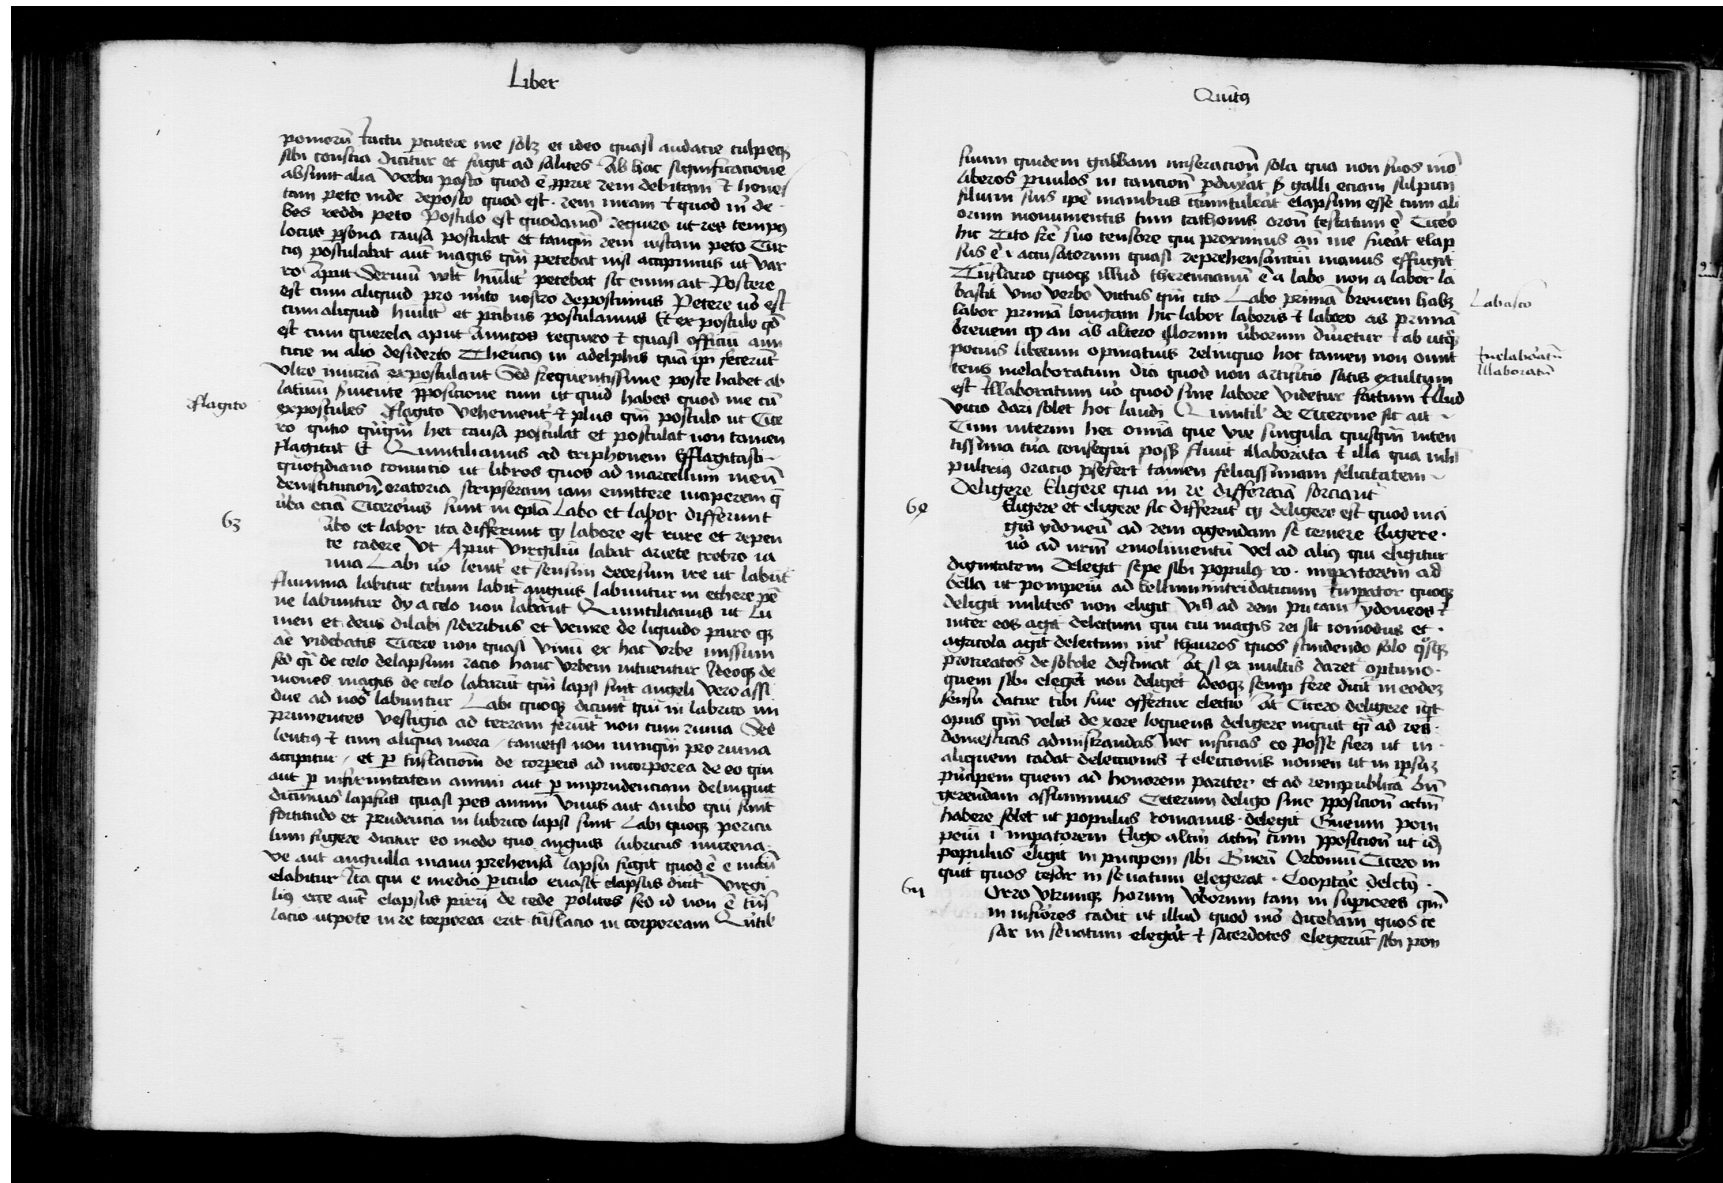 Liber
pomorũ tactu ꝑcutere me solꝫ et ideo quasi audacie culpeqꝫ
sibi conscia dicitur et fugit ad salices Ab hac significatione
absunt alia verba posco quod ē ꝓprie rem debitam ⁊ hones
tam peto inde reposco quod est · rem meam ⁊ quod m̃ de
bes reddi peto Postulo est quodāmō requiro ut res tempꝰ
locus ꝑsona causa postulat et tanqm̃ rem iustam peto Cur
cius postulabat aut̃ magis qm̃ petebat
ro aput Seruiũ petebat sic enim ait Poscere
est cum aliquid pro mito nostro deposcimus Petere uo est
cum aliquid hũilit̃ et p̃cibus postulamus Et ex postulo qd̃
est cum querela aput amicos requiro ⁊ quasi officiũ ami
citie in alio desidero Therẽcius in adelphis quã ip̃i fecerũt
vltro iniuriã expostulant Sed frequentissime poste habet ab
latiuũ ꝓposicione cum ut quid habes quod me cũ
expostules Flagito vehement̃ ⁊ plus qm̃ postulo ut Cice
ro hec causa postulat et postulat non tamen
flagitat Et Quintilianus ad triphonem Efflagitasti ·
quotidiano conuicio ut libros quos ad marcellum meũ
de institucioñ oratoria scripseram iam emittere inciperem q̃
ũba eciã Ciceronis sunt in ep̃la Labo et labor differunt
Labo et labor ita differunt ꝙ labere est ruere et repen
te cadere Vt Aput virgiliũ labat ariete crebro ia
nua Labi uo leuit̃ et sensim deorsum ire ut labũt̃
flumina labitur celum labit̃ anguis labuntur in ethere pẽ
ne labuntur dy a celo non labant Quintilianus ut Lu
men et deus dilabi sideribus et venire de liquido puro qꝫ
aẽ videbatis Cicero non quasi vnũ ex hac vrbe missum
sed q̃i de celo delapsum racio hanc vrbem intuentur Ideoqꝫ de
mones magis de celo labarũt qm̃ lapsi sũt angeli vero assi
due ad nos labuntur Labi quoqꝫ dicunt̃ qui in lubrico im
primentes vestigia ad terram ferũt̃ non cum ruina Sed
lentiꝰ ⁊ cum aliqua mora / tametsi non nunqm̃ pro ruina
accipitur / et ꝑ tñslacionẽ de corpeis ad incorporea de eo qui
aut ꝑ infirmitatem animi aut ꝑ imprudenciam delinquit
dicimus lapsus quasi pes animi vnus aut ambo qui sunt
fortitudo et prudencia in lubrico lapsi sunt Labi quoqꝫ pericu
lum fugere dicitur eo modo quo anguis lubricus murena ·
ve aut anguilla manu prehensa lapsu fugit quod ē e manu
elabitur Ita qui e medio ꝑiculo euasit elapsus dicit̃ virgi
liꝰ ecce aut̃ elapsus pirri de cede polites sed id non ē tñs
lacio utpote in re corporea erit tñslacio in corpoream Quĩtil
flagito
63
Quĩtꝰ
suum quidem galbam miseracioñ sola qua non suos mo
liberos ꝑuulos in concioñ ꝓduxãt sꝫ galli eciam sulpicii
filium suis ip̃e manibus elapsum esse cum ali
orum monumentis tum cathonis oroñ testatum ē Cicẽo
hic Tito fr̃e suo censore qui proximus añ me fuẽat elap
sus ē · accusatorum quasi reprehensantiũ manus effugit
Tñslacio quoqꝫ illud therencianũ ē a labo non a labor la
bascit vno verbo victus qm̃ cito Labo primã breuem habꝫ
labor primã longam hic labor laboris ⁊ laboro ab primã
breuem ꝙ an ab altero illorum ũborum diuetur ⁊ ab utqꝫ
pocius liberum opinatius relinquo hoc tamen non omit
tens inelaboratum dici quod non artificio satis excultum
est Illaboratum uo quod sine labore videtur factum ⁊ illud
vicio dari solet hoc laudi Quintil̃ de Cicerone sic ait ~
Cum interim hec omia que vix singula quisqm̃ inten
tissima cura consequi possꝫ fluut illaborata ⁊ illa qua nihil
pulcriꝰ oratio p̃sefert tamen felicissimam felicitatem ~
Deligere Eligere qua in re differenciã sorciant̃
Eligere et eligere sic differũt ꝙ deligere est quod ma
gis ydoneũ ad rem agendam sit cernere Eligere ·
uo ad nr̃m emolimentũ vel ad aliꝰ qui eligitur
dignitatem Delegit sepe sibi populꝰ ro · impatorem ad
bella ut pompeiũ ad bellum mitridaticum Imperator quoqꝫ
deligit milites non eligit Vis ad rem pu tam ydoneos ⁊
inter eos agit delectum qui cui magis rei sit comodus et ·
agricola agit delectum int̃ thauros quos scindendo solo
procreatos de sobole destinat At si ex multis daret̃ optimo ·
quem sibi eleget non deliget Ideoqꝫ semp fere dicit̃ in eodeꝫ
sensu datur tibi siue offertur electio At Cicero deligere
opus qm̃ velis de xore loquens deligere inquit q̃i ad res ·
domesticas administrandas nec inficias eo posse fieri ut in ·
aliquem cadat deleccionis ⁊ eleccionis nomen ut in ipsuꝫ
pr̃icipem quem ad honorem pariter · et ad rempublicã bñ
gerendam assumimus Ceterum deligo sine ꝓposicioñ actm̃
habere solet ut populus romanus · delegit Gneum pom
peiũ ĩ impatorem Eligo altm̃ actm̃ cum ꝓposicioñ ut idẽ
populus eligit in pr̃icipem sibi Gneũ Cicero in
quit quos cesar in senatum elegerat · Cooptãe delctꝰ ·
Orro vtrunqꝫ horum ũborum tam in supiores qm̃
in infiores cadit ut illud quod mõ dicebam quos ce
sar in senatum elegãt ⁊ sacerdotes elegerũt sibi pon
Labasco
Inelaboratũ
Illaboratũ